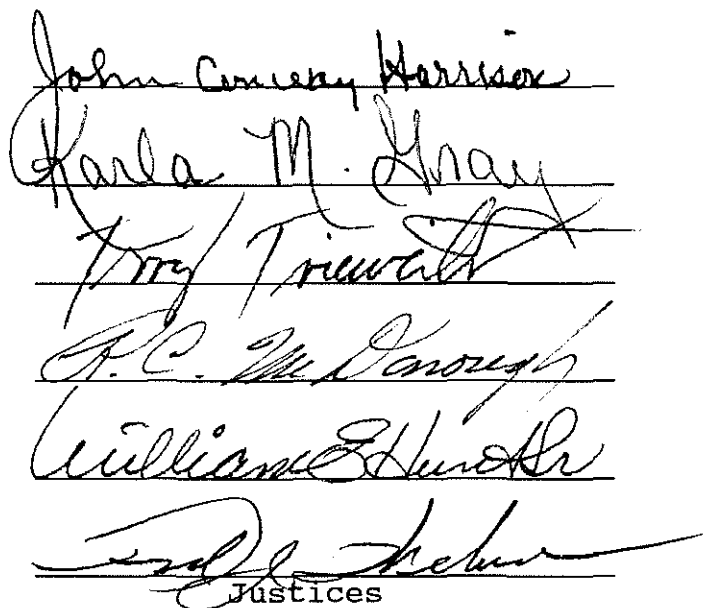 John Conway Harrison
Karla M. Gray
Terry Trieweiler
R. C. McDonough
William E Hunt Sr
Justices